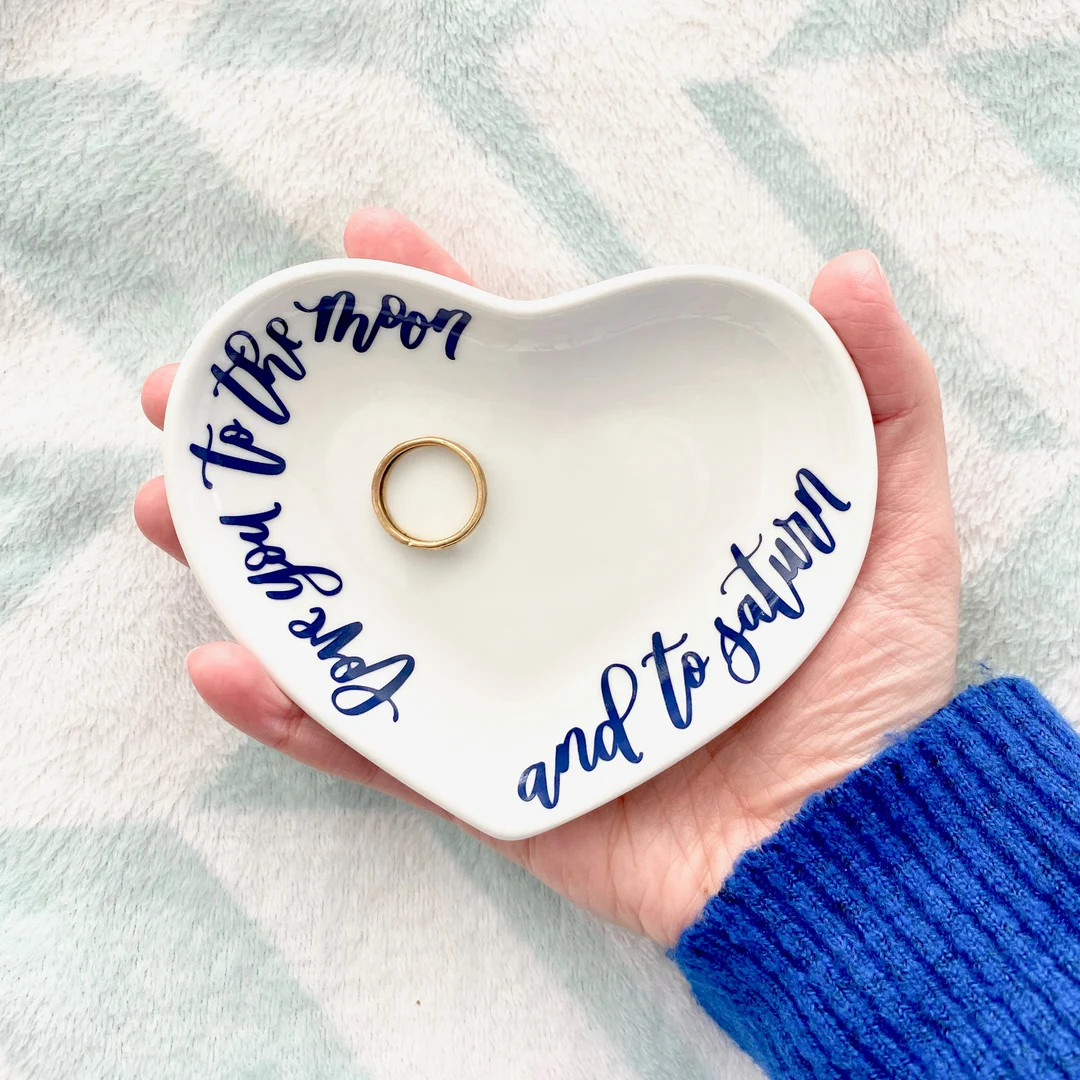 love you to the moon
and to saturn